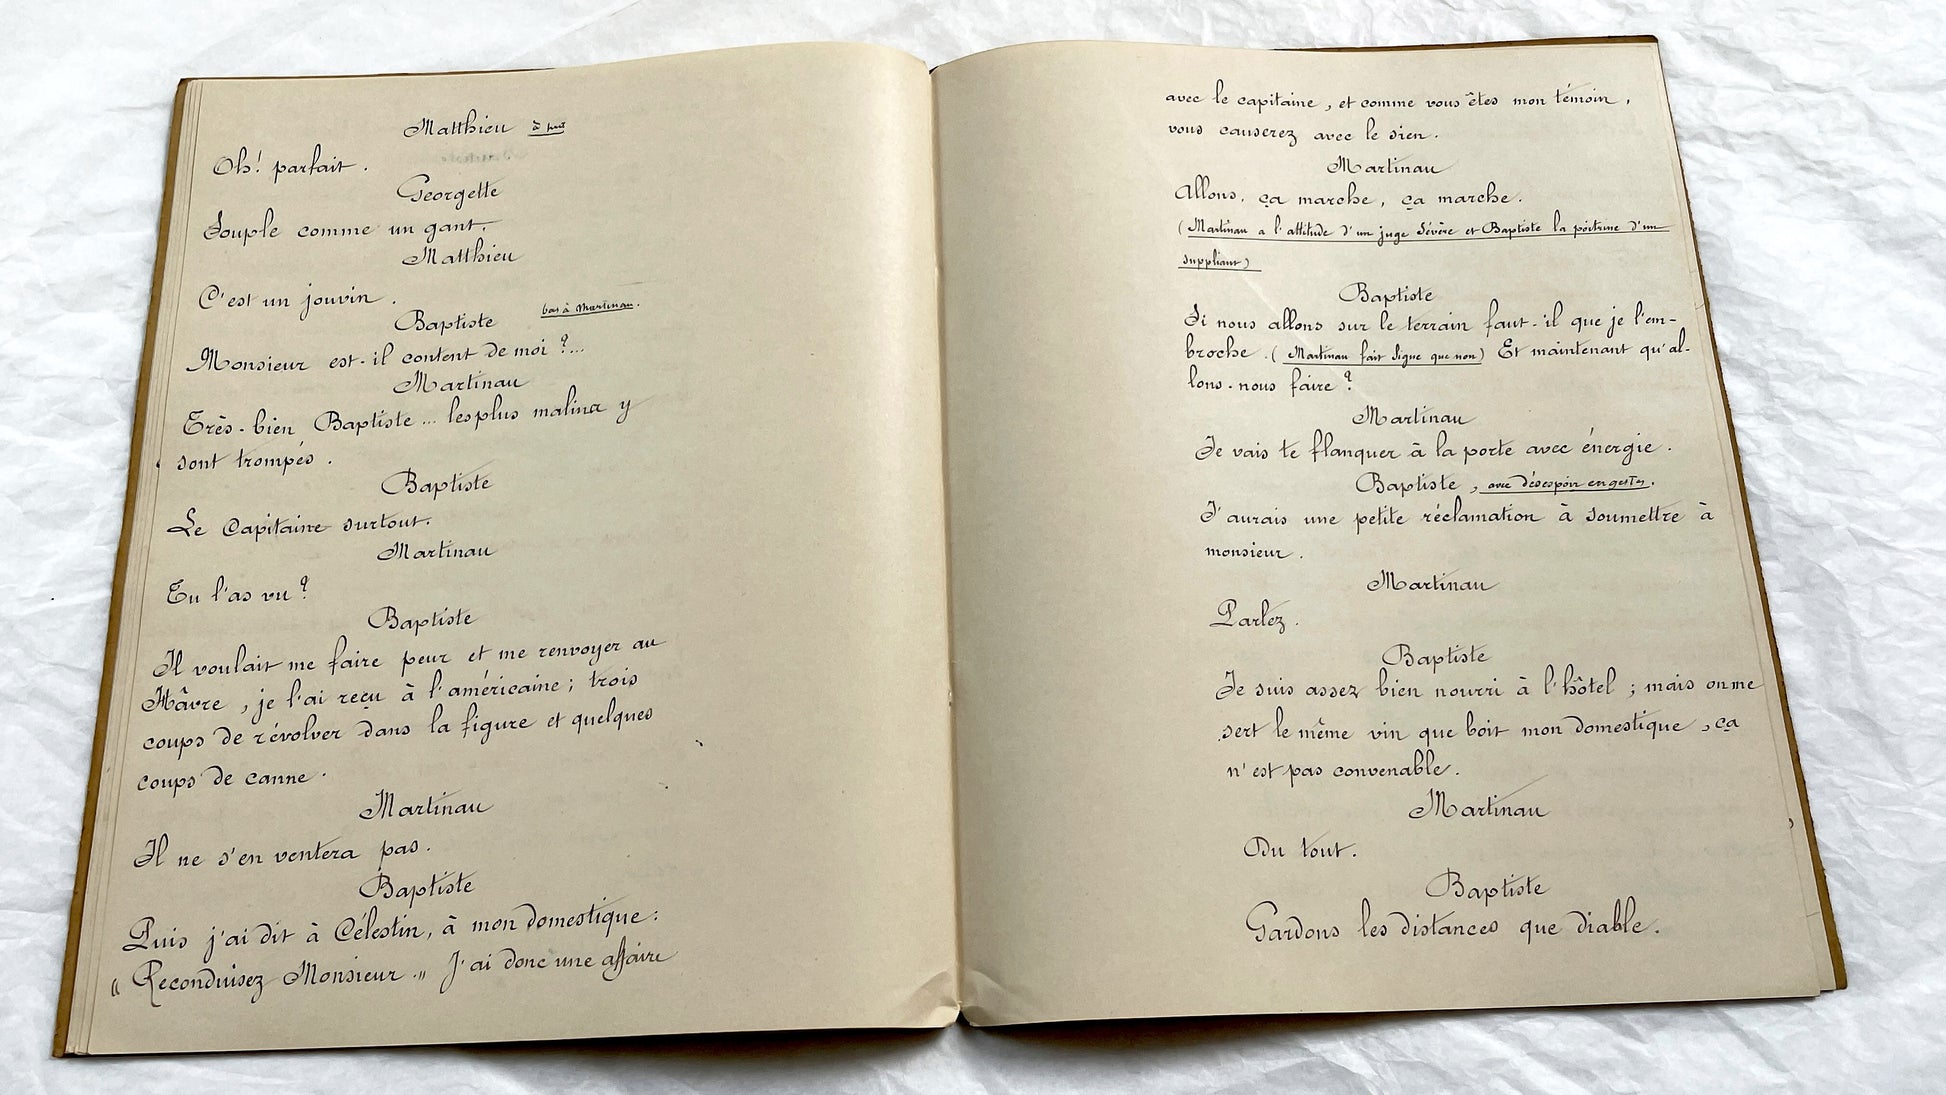 Matthieu à part
Oh! parfait.
Georgette
Souple comme un gant.
Matthieu
C'est un jouvin.
Baptiste bas à Martinau.
Monsieur est-il content de moi ?...
Martinau
Très-bien Baptiste... les plus malins y
sont trompés.
Baptiste
Le Capitaine surtout.
Martinau
Tu l'as vu ?
Baptiste
Il voulait me faire peur et me renvoyer au
Hâvre, je l'ai reçu à l'américaine ; trois
coups de révolver dans la figure et quelques
coups de canne.
Martinau
Il ne s'en ventera pas.
Baptiste
Puis j'ai dit à Célestin, à mon domestique :
" Reconduisez Monsieur." J'ai donc une affaire
avec le capitaine, et comme vous êtes mon témoin,
vous causerez avec le sien.
Martinau
Allons, ça marche, ça marche.
(Martinau a l'attitude d'un juge sévère et Baptiste la poitrine d'un
suppliant)
Baptiste
Si nous allons sur le terrain faut-il que je l'em-
broche. (Martinau fait signe que non) Et maintenant qu'al-
lons-nous faire ?
Martinau
Je vais te flanquer à la porte avec énergie.
Baptiste, avec désespoir en gestes.
J'aurais une petite réclamation à soumettre à
monsieur.
Martinau
Parlez.
Baptiste
Je suis assez bien nourri à l'hôtel ; mais on me
sert le même vin que boit mon domestique, ça
n'est pas convenable.
Martinau
Du tout.
Baptiste
Gardons les distances que diable.